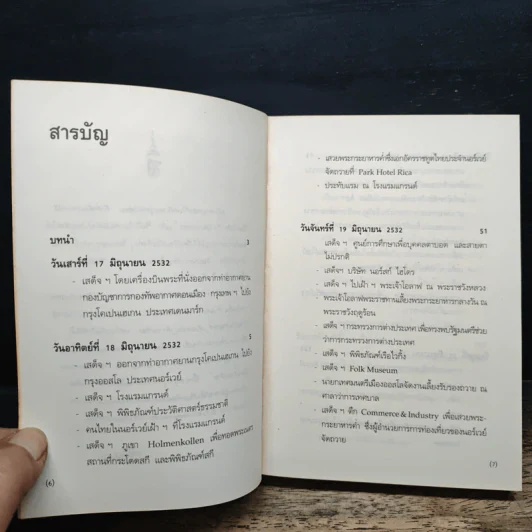 สารบัญ
บทนำ 3
วันเสาร์ที่ 17 มิถุนายน 2532
- เสด็จ ฯ โดยเครื่องบินพระที่นั่งออกจากท่าอากาศยาน
กองบัญชาการกองทัพอากาศดอนเมือง กรุงเทพ ฯ ไปยัง
กรุงโคเปนเฮเกน ประเทศเดนมาร์ก
วันอาทิตย์ที่ 18 มิถุนายน 2532 5
- เสด็จ ฯ ออกจากท่าอากาศยานกรุงโคเปนเฮเกน ไปยัง
กรุงออสโล ประเทศนอร์เวย์
- เสด็จ ฯ โรงแรมแกรนด์
- เสด็จ ฯ พิพิธภัณฑ์ประวัติศาสตร์ธรรมชาติ
- คนไทยในนอร์เวย์เฝ้า ฯ ที่โรงแรมแกรนด์
- เสด็จ ฯ ภูเขา Holmenkollen เพื่อทอดพระเนตร
สถานที่กระโดดสกี และพิพิธภัณฑ์สกี
(6)
- เสวยพระกระยาหารค่ำซึ่งเอกอัครราชทูตไทยประจำนอร์เวย์
จัดถวายที่ Park Hotel Rica
- ประทับแรม ณ โรงแรมแกรนด์
วันจันทร์ที่ 19 มิถุนายน 2532 51
- เสด็จ ฯ ศูนย์การศึกษาเพื่อบุคคลตาบอด และสายตา
ไม่ปรกติ
- เสด็จฯ บริษัท นอร์สก์ ไฮโดร
- เสด็จ ฯ ไปเฝ้า ฯ พระเจ้าโอลาฟ ณ พระราชวังหลวง
พระเจ้าโอลาฟพระราชทานเลี้ยงพระกระยาหารกลางวัน ณ
พระราชวังฤดูร้อน
- เสด็จ ฯ กระทรวงการต่างประเทศ เพื่อทรงพบรัฐมนตรีช่วย
ว่าการกระทรวงการต่างประเทศ
- เสด็จ ฯ พิพิธภัณฑ์เรือไวกิ้ง
- เสด็จ ฯ Folk Museum
- นายกเทศมนตรีเมืองออสโลจัดงานเลี้ยงรับรองถวาย ณ
ศาลาว่าการเทศบาล
- เสด็จ ฯ ตึก Commerce & Industry เพื่อเสวยพระ-
กระยาหารค่ำ ซึ่งผู้อำนวยการการท่องเที่ยวของนอร์เวย์
จัดถวาย
(7)